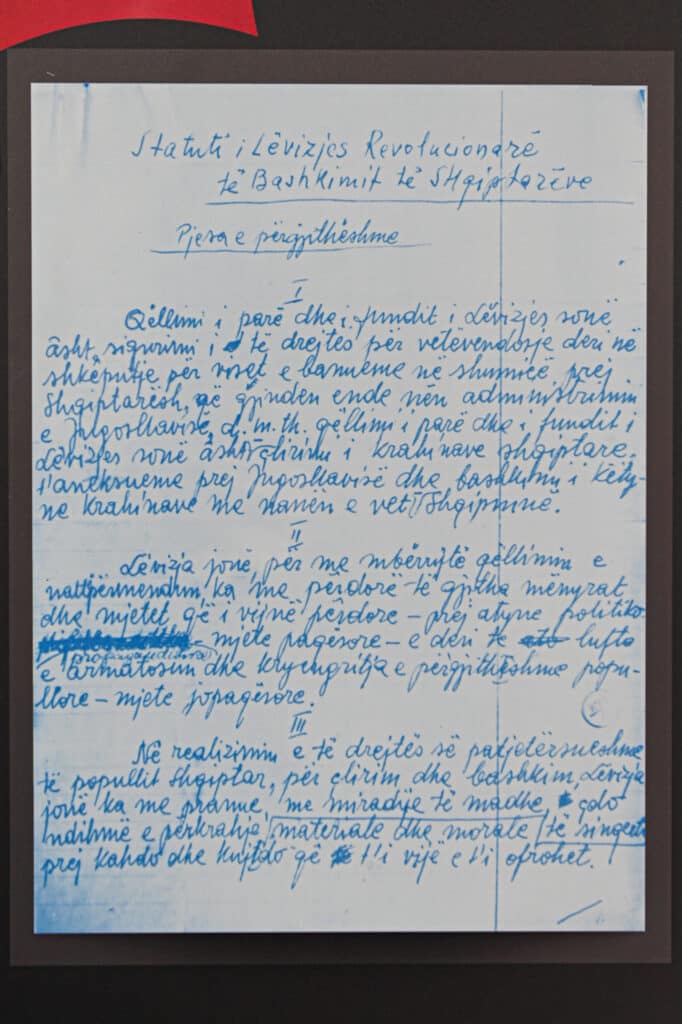 Statuti i Lëvizjes Revolucionarë
të Bashkimit të Shqiptarëve
Pjesa e përgjithëshme
I
Qëllimi i parë dhe i fundit i Lëvizjes sonë
âsht sigurimi i të drejtës për vetëvendosje deri në
shkëputje për viset e banueme në shumicë prej
Shqiptarësh, që gjinden ende nën administrimin
e Jugosllavisë, d.m.th. qëllimi i parë dhe i fundit i
Lëvizjes sonë âsht çlirimi i krahinave shqiptare
t'aneksueme prej Jugosllavisë dhe bashkimi i këty-
ne krahinave me nanën e vet Shqipninë.
II
Lëvizja jonë për me mbërrijtë qëllimin e
naltpërmendun, ka me përdorë të gjitha mënyrat
dhe mjetet që i vijnë përdore – prej atyne politiko
– mjete paqësore – e deri te lufta
e armatosun dhe kryengritja e përgjithëshme popu-
llore – mjete jopaqësore.
III
Në realizimin e të drejtës së patjetërsueshme
të popullit Shqiptar, për çlirim dhe bashkim, Lëvizja
jonë ka me pranue, me miradije të madhe, çdo
ndihmë e përkrahje materiale dhe morale të singertë
prej kahdo dhe kujtdo që t'i vijë e t'i ofrohet.